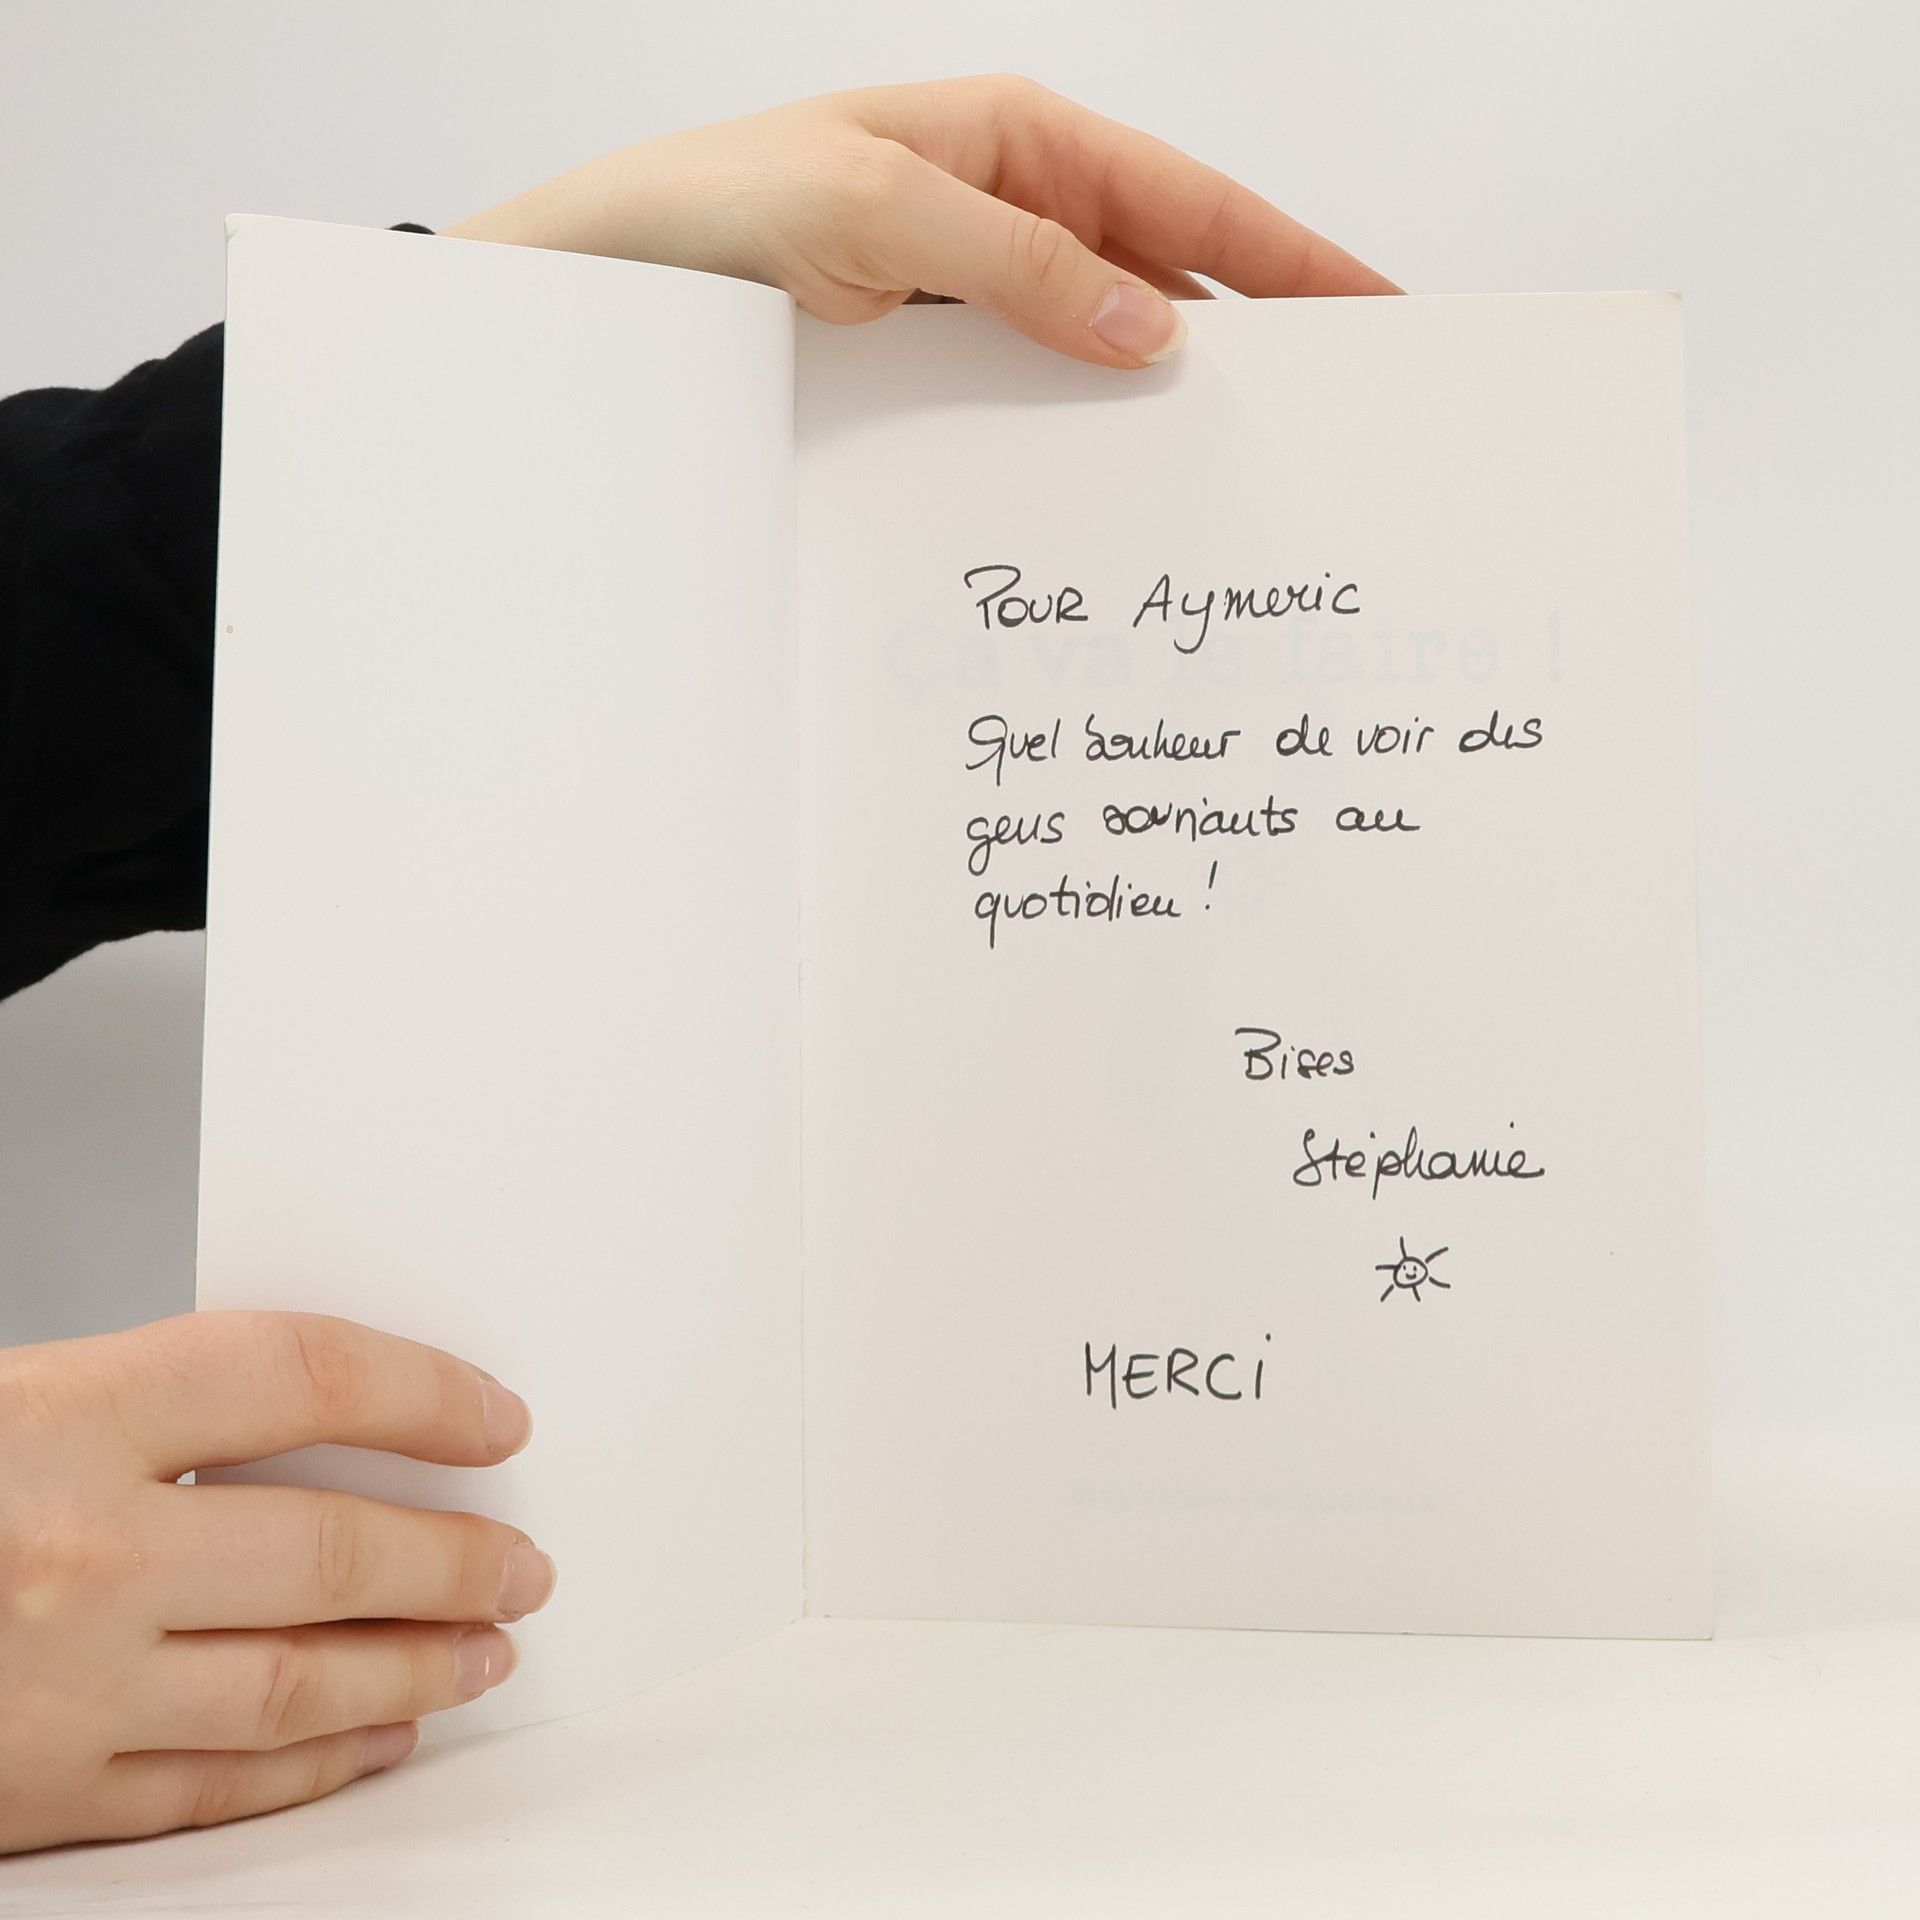 Pour Aymeric
Ça va le faire !
Quel bonheur de voir des
gens souriants au
quotidien !
Bises
Stéphanie
MERCi